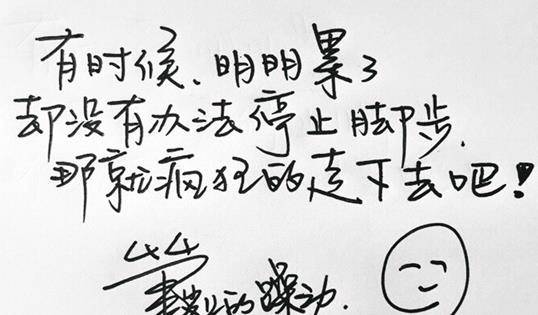 有时候、明明累了
却没有办法停止脚步.
那就疯狂的走下去吧!
44
的躁动.